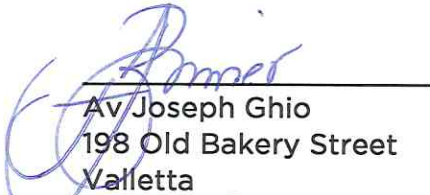 Av Joseph Ghio
198 Old Bakery Street
Valletta